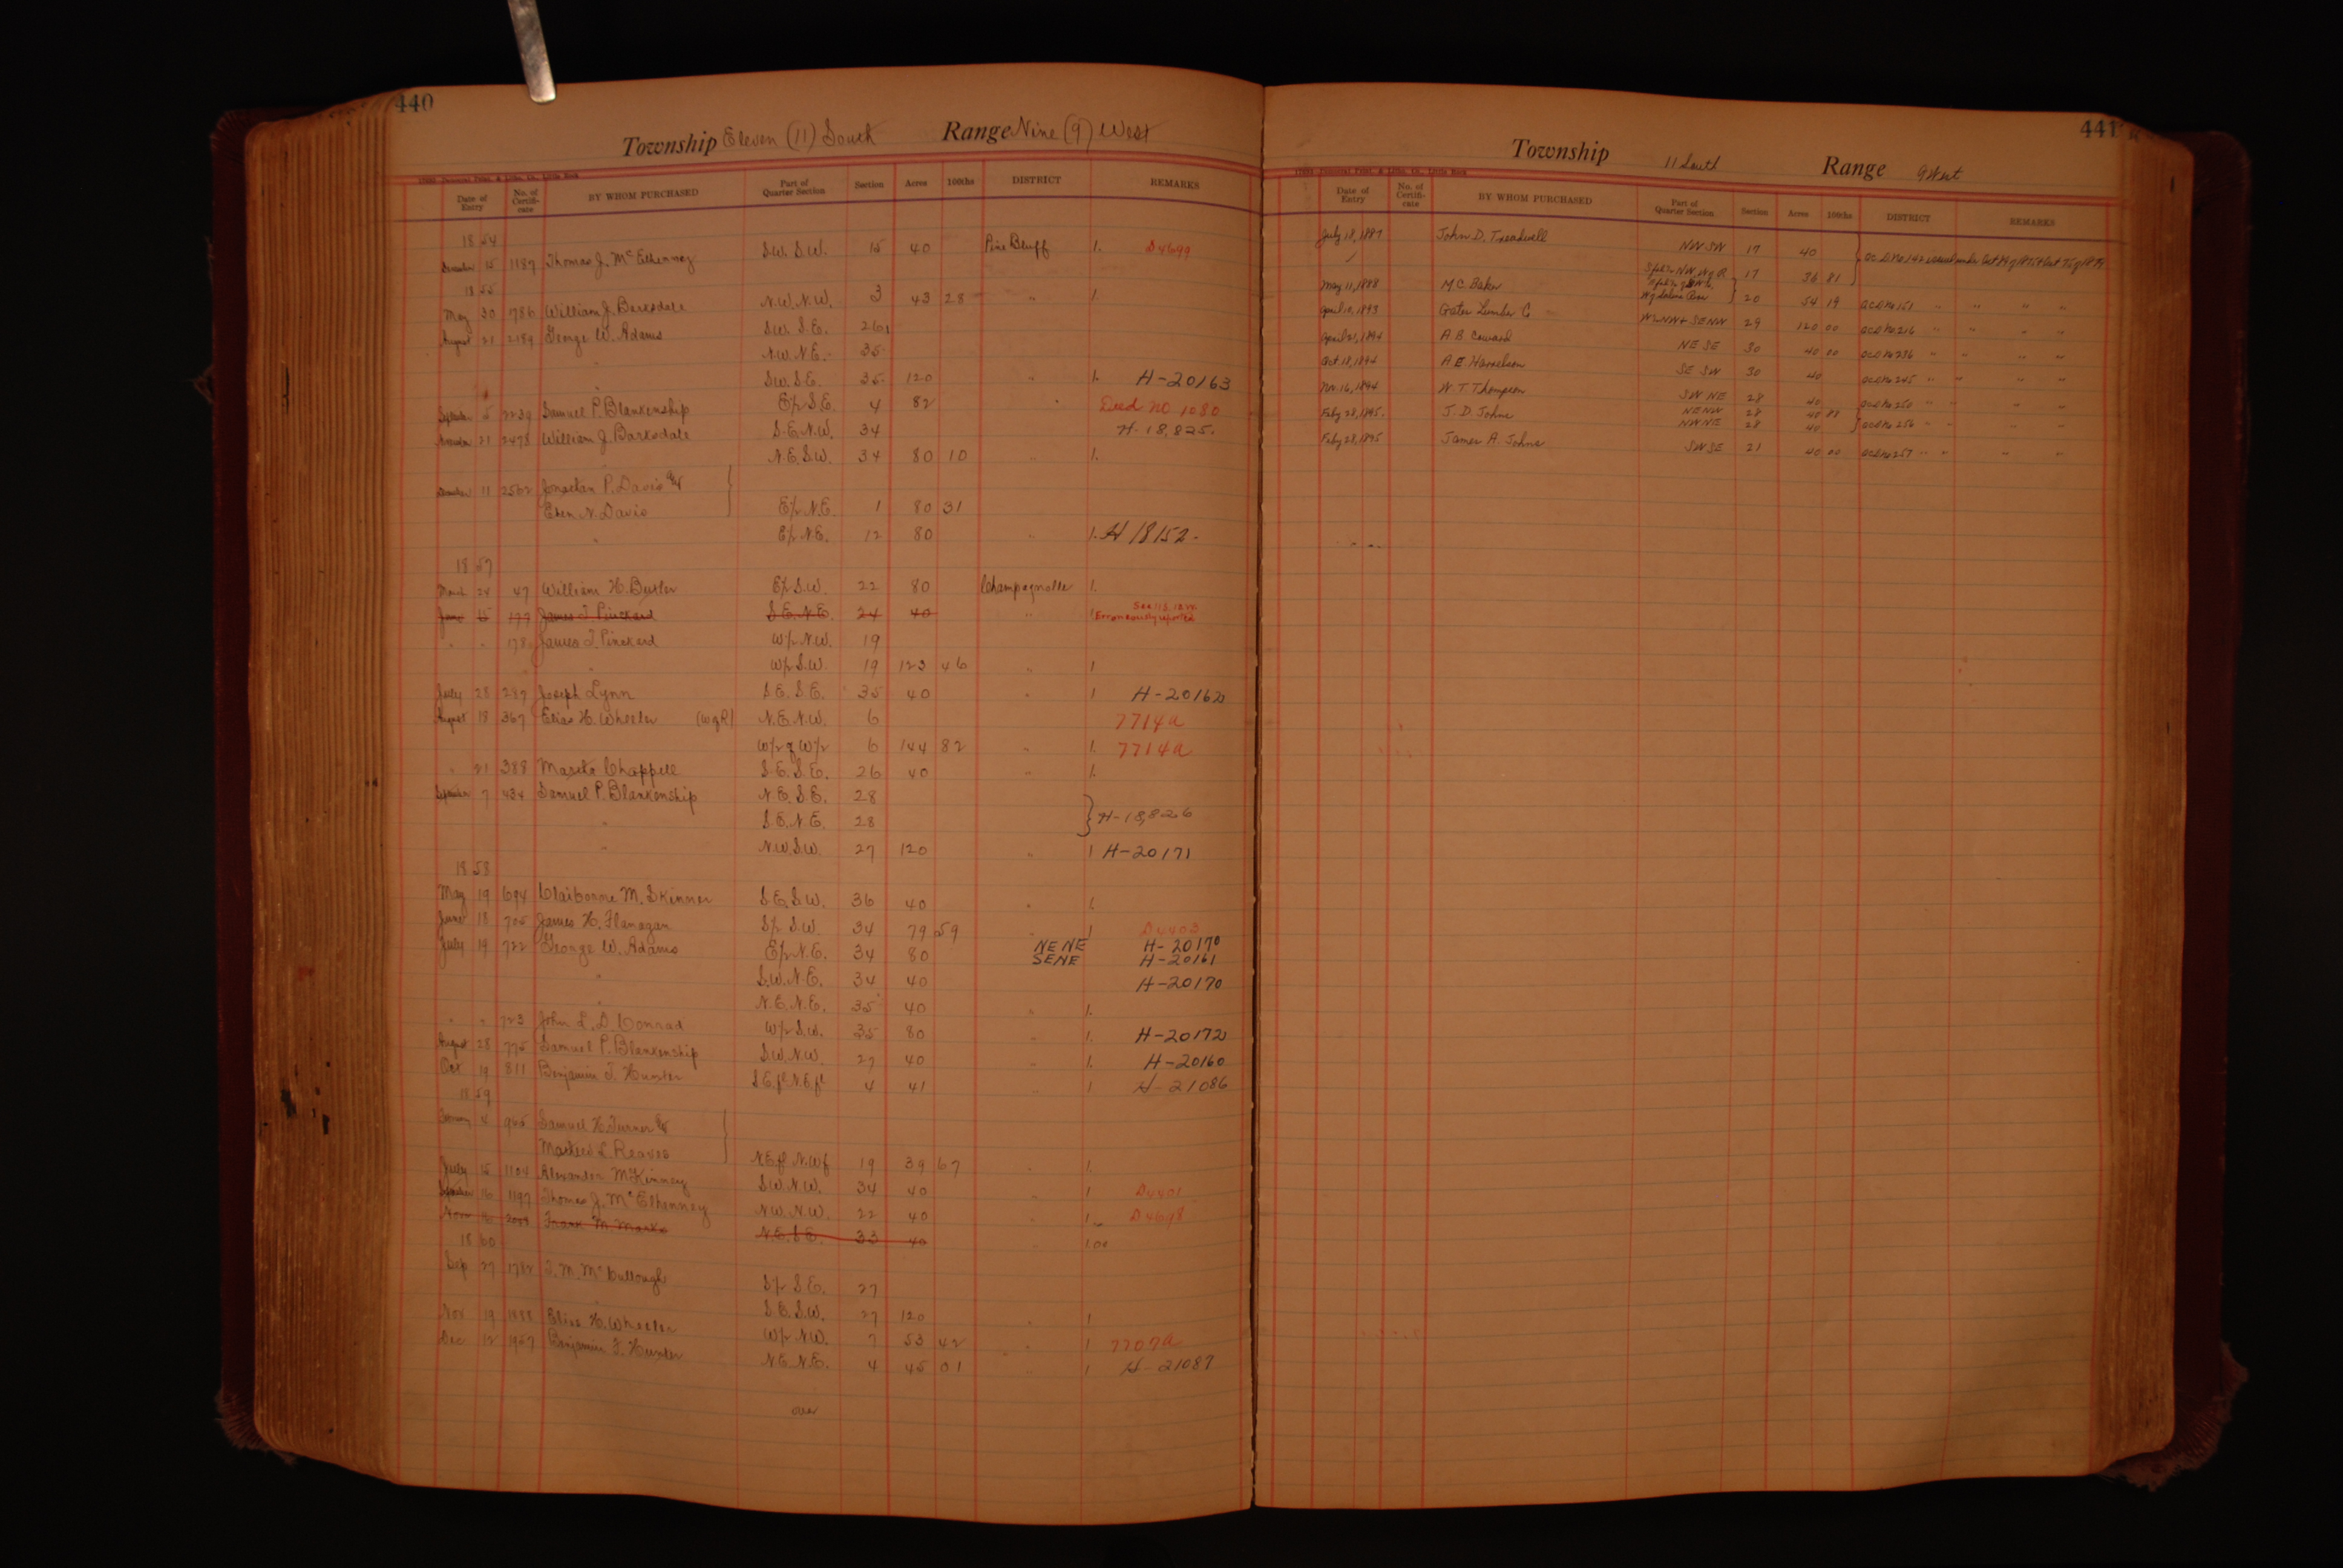 440
Township Eleven (11) South Range Nine (9) West
Date of Entry No. of Certificate BY WHOM PURCHASED Part of Quarter Section Section Acres 100ths DISTRICT REMARKS
1854
December 15 1187 Thomas J. McElhenney S.W. S.W. 15 40 Pine Bluff 1. D4699
1855
May 30 786 William J. Barksdale N.W. N.W. 3 43 28 " 1.
August 21 2189 George W. Adams S.W. S.E. 26
" N.W. N.E. 35
" S.W. S.E. 35 120 " 1. H-20163
September 5 2234 Samuel P. Blankenship E/2 S.E. 4 82 " Deed no 1080
November 21 2478 William J. Barksdale S.E. N.W. 34 H-18,825.
" N.E. S.W. 34 80 10 " 1.
December 11 2562 Jonathan P. Davis &
Eben N. Davis E/2 N.E. 1 80 31
" E/2 N.E. 12 80 " 1. H 18152.
1857
March 24 47 William H. Butler E/2 S.W. 22 80 Champagnolle 1.
June 15 177 James T. Pinckard S.E. N.E. 24 40 " 1 See 11 S. 12 W. Erroneously reported
" " 178 James T. Pinckard W/2 N.W. 19
" W/2 S.W. 19 123 46 " 1
July 28 287 Joseph Lynn S.E. S.E. 35 40 " 1 H-20162
August 18 367 Elias H. Wheeler (W of R) N.E. N.W. 6 7714a
W/2 of W/2 6 144 82 " 1. 7714a
" 21 388 Chappell S.E. S.E. 26 40 " 1.
September 7 434 Samuel P. Blankenship N.E. S.E. 28
" S.E. N.E. 28 H-18,826
" N.W. S.W. 27 120 " 1 H-20171
1858
May 19 694 Claiborne M. Skinner S.E. S.W. 36 40 " 1.
June 18 705 James H. Flanagan S/2 S.W. 34 79 59 " 1 D4403
July 19 722 George W. Adams E/2 N.E. 34 80 NE NE H-20170
SENE H-20161
" S.W. N.E. 34 40 H-20170
" N.E. N.E. 35 40 " 1.
" " 723 John L. D. Conrad W/2 S.W. 35 80 " 1. H-20172
August 28 775 Samuel P. Blankenship S.W. N.W. 27 40 " 1. H-20160
Oct 19 811 Benjamin F. Hunter S.E. fl N.E. fl 4 41 " 1 H-21086
1859
February 4 965 Samuel H. Turner &
L. Reaves N.E. fl N.W. f 19 39 67 " 1.
July 15 1104 Alexander McKinney S.W. N.W. 34 40 " 1 D4401
September 16 1197 Thomas J. McElhenney N.W. N.W. 22 40 " 1 D4698
Nov 16 2008 Frank M. Marks N.E. S.E. 33 40 1 00
1860
Sep 27 1782 T. M. McCullough S/2 S.E. 27
" S.E. S.W. 27 120 " 1
Nov 19 1888 Elias H. Wheeler W/2 N.W. 7 53 42 " 1 7707a
Dec 12 1967 Benjamin F. Hunter N.E. N.E. 4 45 01 " 1 H-21087
over
441
Township 11 South Range 9 West
Date of Entry No. of Certificate BY WHOM PURCHASED Part of Quarter Section Section Acres 100ths DISTRICT REMARKS
July 18, 1887 John D. Treadwell NW SW 17 40
17 36 81
May 11, 1888 M.C. Baker 20 54 19 " " " "
April 10, 1893 Gates Lumber Co W/2 NW & SENW 29 120 00 " " " "
April 21, 1894 A B Coward NE SE 30 40 00 " " " "
Oct 18, 1894 A E Harrelson SE SW 30 40 " " " "
Nov. 16, 1894 W. T Thompson SW NE 28 40 " " " "
Feby 28, 1895. J. D. Johns NENW 28 40 " "
NWNE 28 40
Feby 28, 1895 James A. Johns SWSE 21 40 00 " " " "